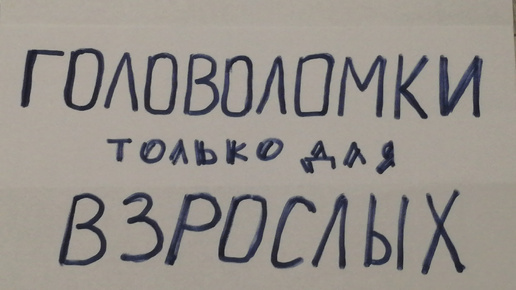 ГОЛОВОЛОМКИ
ТОЛЬКО ДЛЯ
ВЗРОСЛЫХ